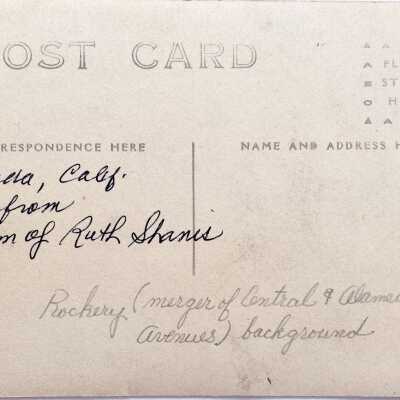 OST CARD
A A
A FL
M ST
O H
A A
RESPONDENCE HERE
NAME AND ADDRESS H
da, Calif.
from
m of Ruth Shanis
Rockery (merger of Central & Alame
Avenues) background